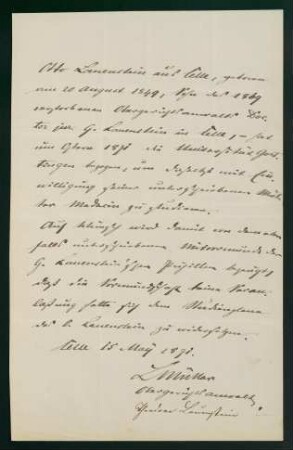 Otto Lauenstein aus Celle, geboren
am 20 August 1849, Sohn des 1869
verstorbenen Obergerichtsanwalts Doc-
tor jur. G. Lauenstein in Celle, – hat
um Ostern 1871 die Universität Göt-
tingen bezogen, um daselbst mit Ein-
willigung seiner unterschriebenen Mut-
ter Medicin zu studieren.
Auf Wunsch wird damit von dem eben-
falls unterschriebenen Mitvormunde der
G. Lauensteinschen Pupillen bezeugt
daß die Vormundschaft keine Veran-
lassung hatte sich dem Studienplane
des O. Lauenstein zu widersetzen.
Celle 15 May 1871.
L Müller
Obergerichtsanwalt
Lauenstein